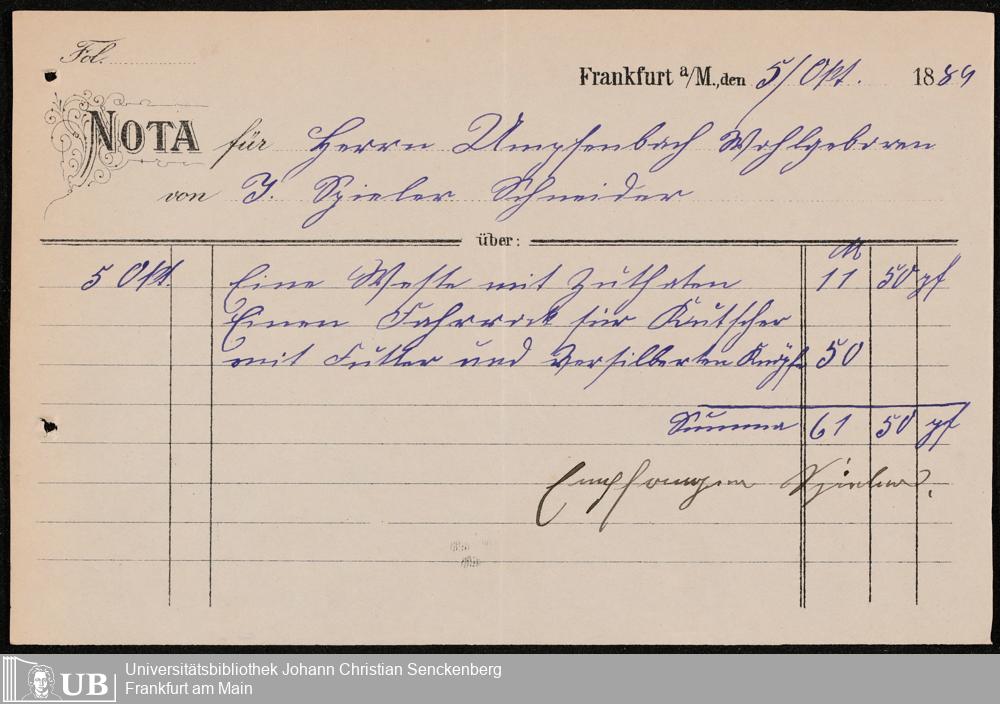 Fol.
Frankfurt a/M., den 5/Okt. 1889
NOTA für Herrn Umpfenbach Wohlgeboren
von J. Spieler Schneider
über:
M
5 Okt. Eine Weste mit Zuthaten 11 50 pf
Einen Fahrrock für Kutscher
mit Futter und versilberten Knöpfe 50
Summa 61 50 pf
Empfangen Spieler.
Universitätsbibliothek Johann Christian Senckenberg
UB Frankfurt am Main